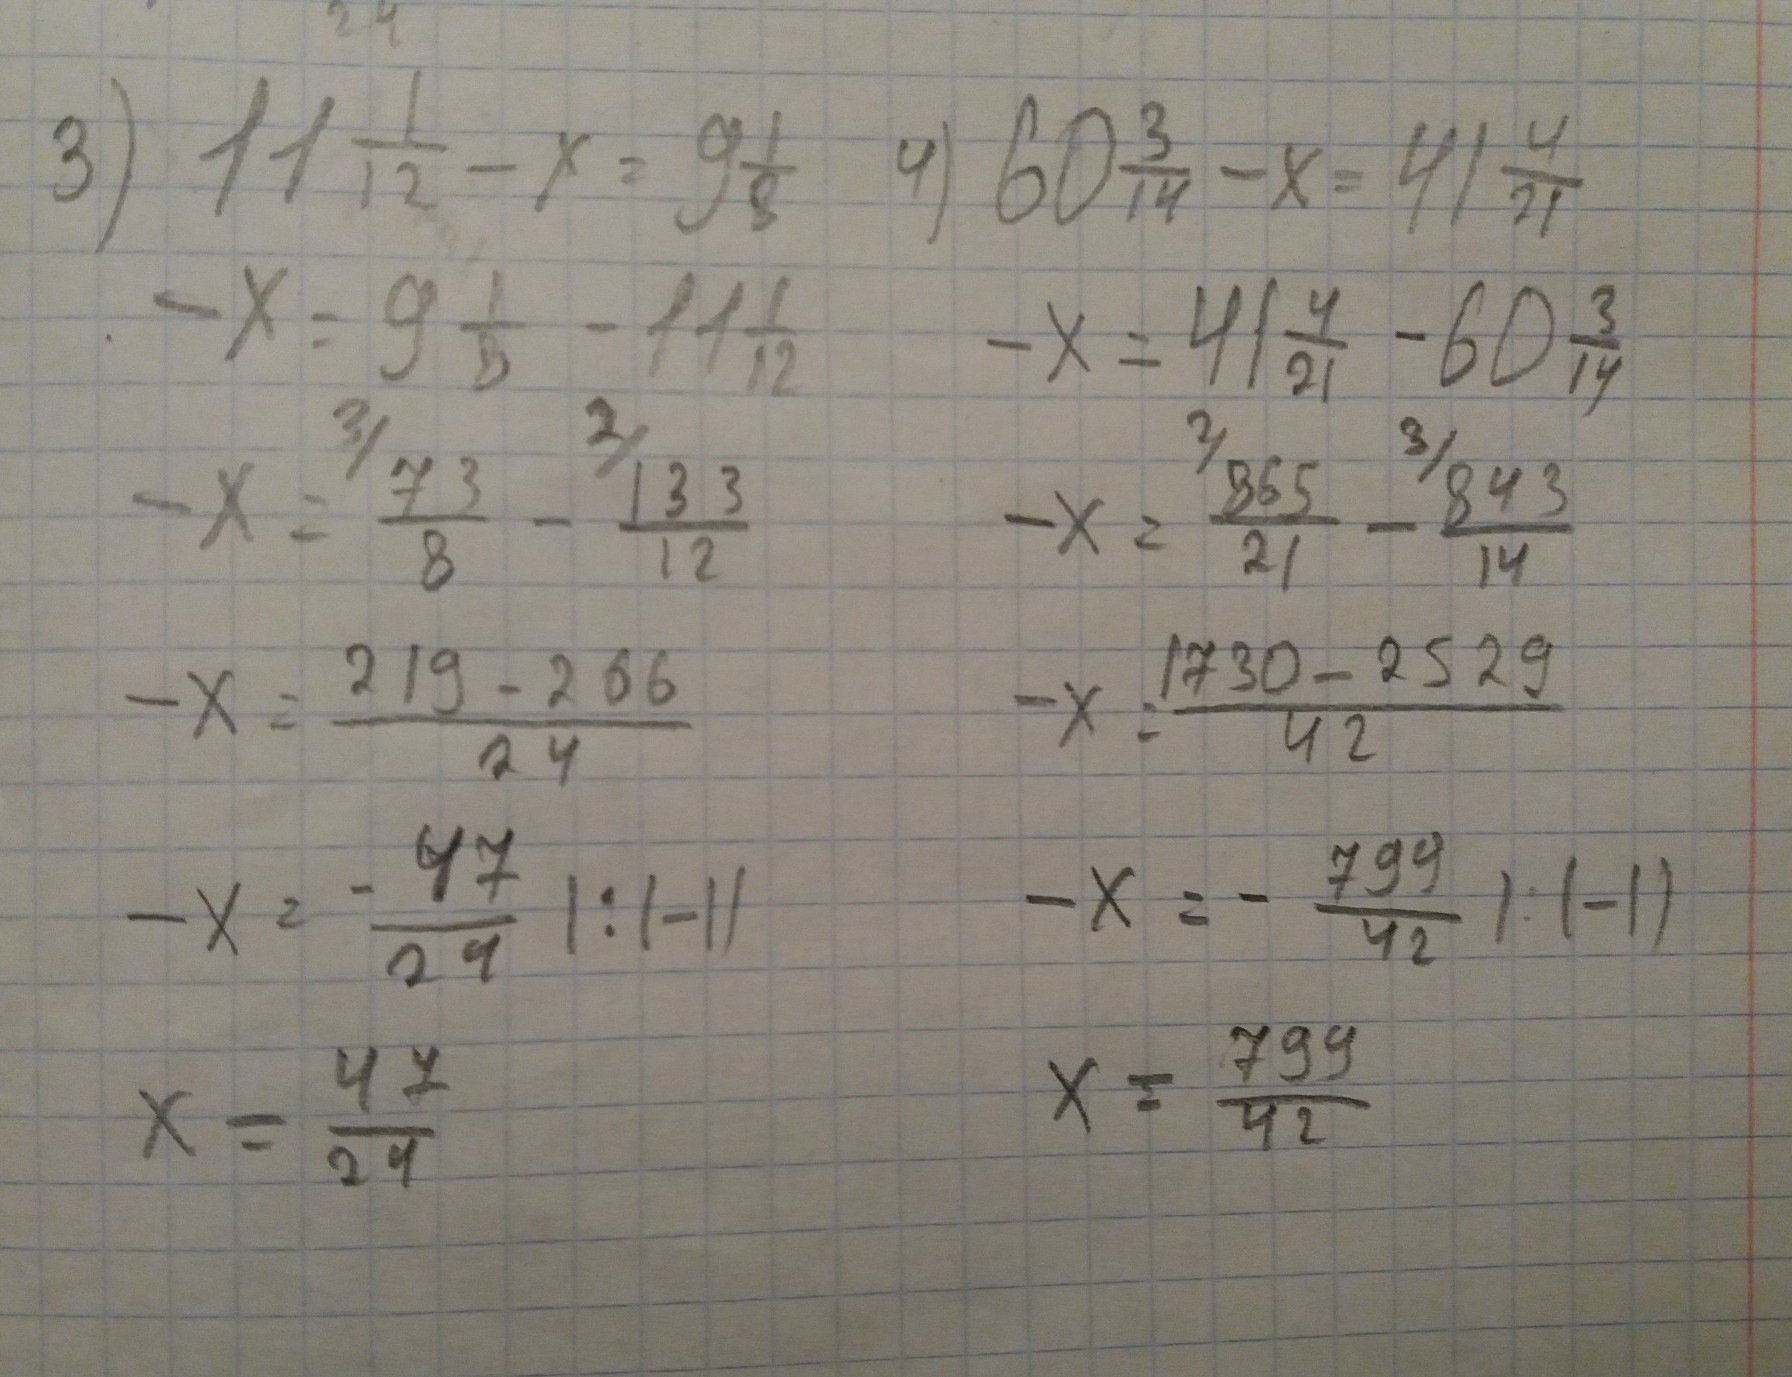 24
3) 11 1/12 - x = 9 1/8
-x = 9 1/8 - 11 1/12
-x = 3/ 73/8 - 2/ 133/12
-x = (219 - 266)/24
-x = -47/24 |:(-1)
x = 47/24
4) 60 3/14 - x = 41 4/21
-x = 41 4/21 - 60 3/14
-x = 2/ 865/21 - 3/ 843/14
-x = (1730 - 2529)/42
-x = -799/42 |:(-1)
x = 799/42